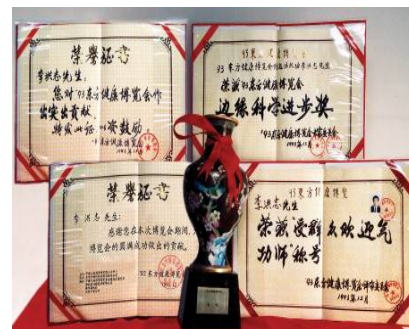 荣誉证书
李洪志先生:
您对'93东方健康博览会作
出突出贡献,
特发此证,以资鼓励
'93东方健康博览会
1993年12月
93东方健康博览会
荣获'93东方健康博览会
边缘科学进步奖
'93东方健康博览会评审委员会
1993年12月
荣誉证书
李洪志先生:
感谢您在本次博览会期间,
博览会的圆满成功做出的贡献。
'93东方健康博览会
93东方健康博览
李洪志先生
荣获"受群众欢迎气
功师"称号
'93东方健康博览会评审委员会
1993年12月